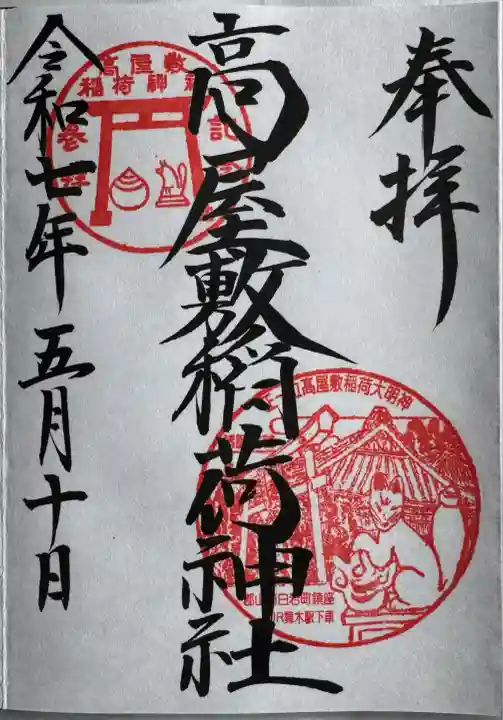 奉拝
高屋敷稲荷神社
令和七年五月十日
高屋敷
稲荷神社
参拝
記
高屋敷稲荷大明神
郡山市白岩町鎮座
JR舞木駅下車